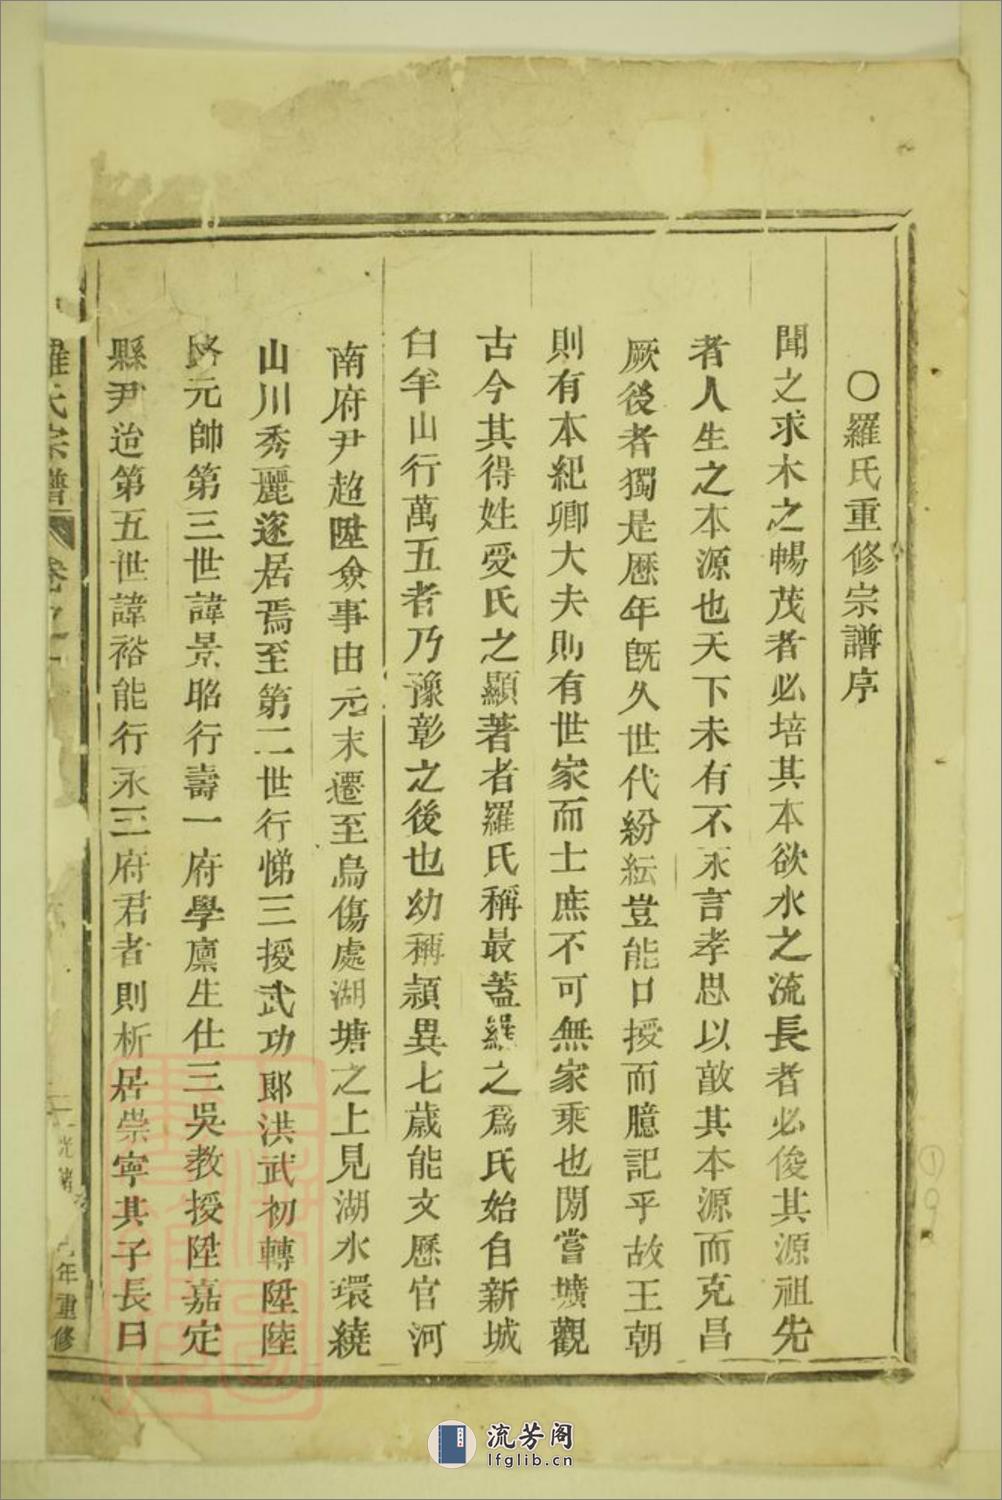 〇羅氏重修宗譜序
聞之求木之暢茂者必培其本欲水之流長者必俊其源祖先
者人生之本源也天下未有不永言孝思以敨其本源而克昌
厥後者獨是歷年旣久世代紛紜豈能口授而臆記乎故王朝
則有本紀卿大夫則有世家而士庶不可無家乘也閒嘗壙觀
古今其得姓受氏之顯著者羅氏稱最蓋羅之爲氏始自新城
白羊山行萬五者乃豫彰之後也幼稱頴異七歲能文歷官河
南府尹超陞僉事由元末遷至烏傷處湖塘之上見湖水環繞
山川秀麗逐居焉至第二世行悌三授武功郎洪武初轉陞陸
路元帥第三世諱景昭行壽一府學廪生仕三吳教授陞嘉定
縣尹迨第五世諱裕能行永三府君者則析居崇寧其子長曰
羅氏宗譜 卷之一 光緒 年重修
流芳阁
lfglib.cn